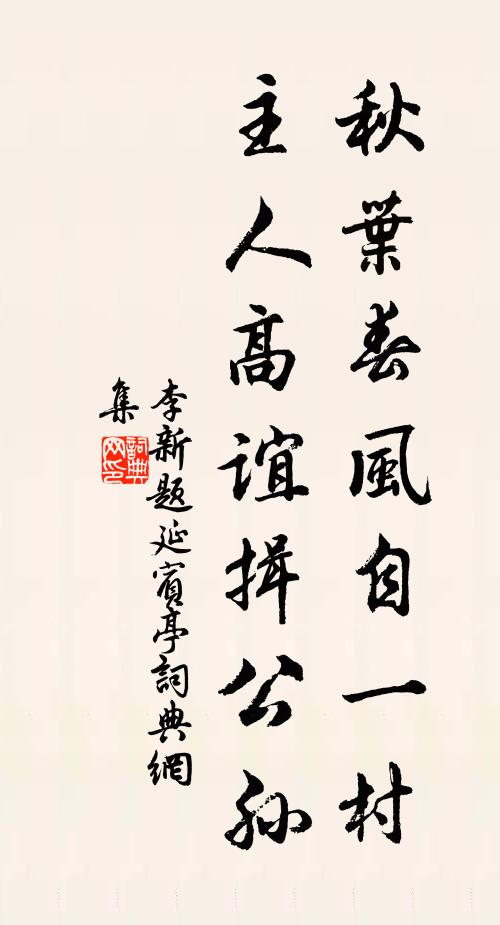 秋葉春風自一村
主人高誼揖公孫
李新題延賓亭詞典網
集
詞典
网印